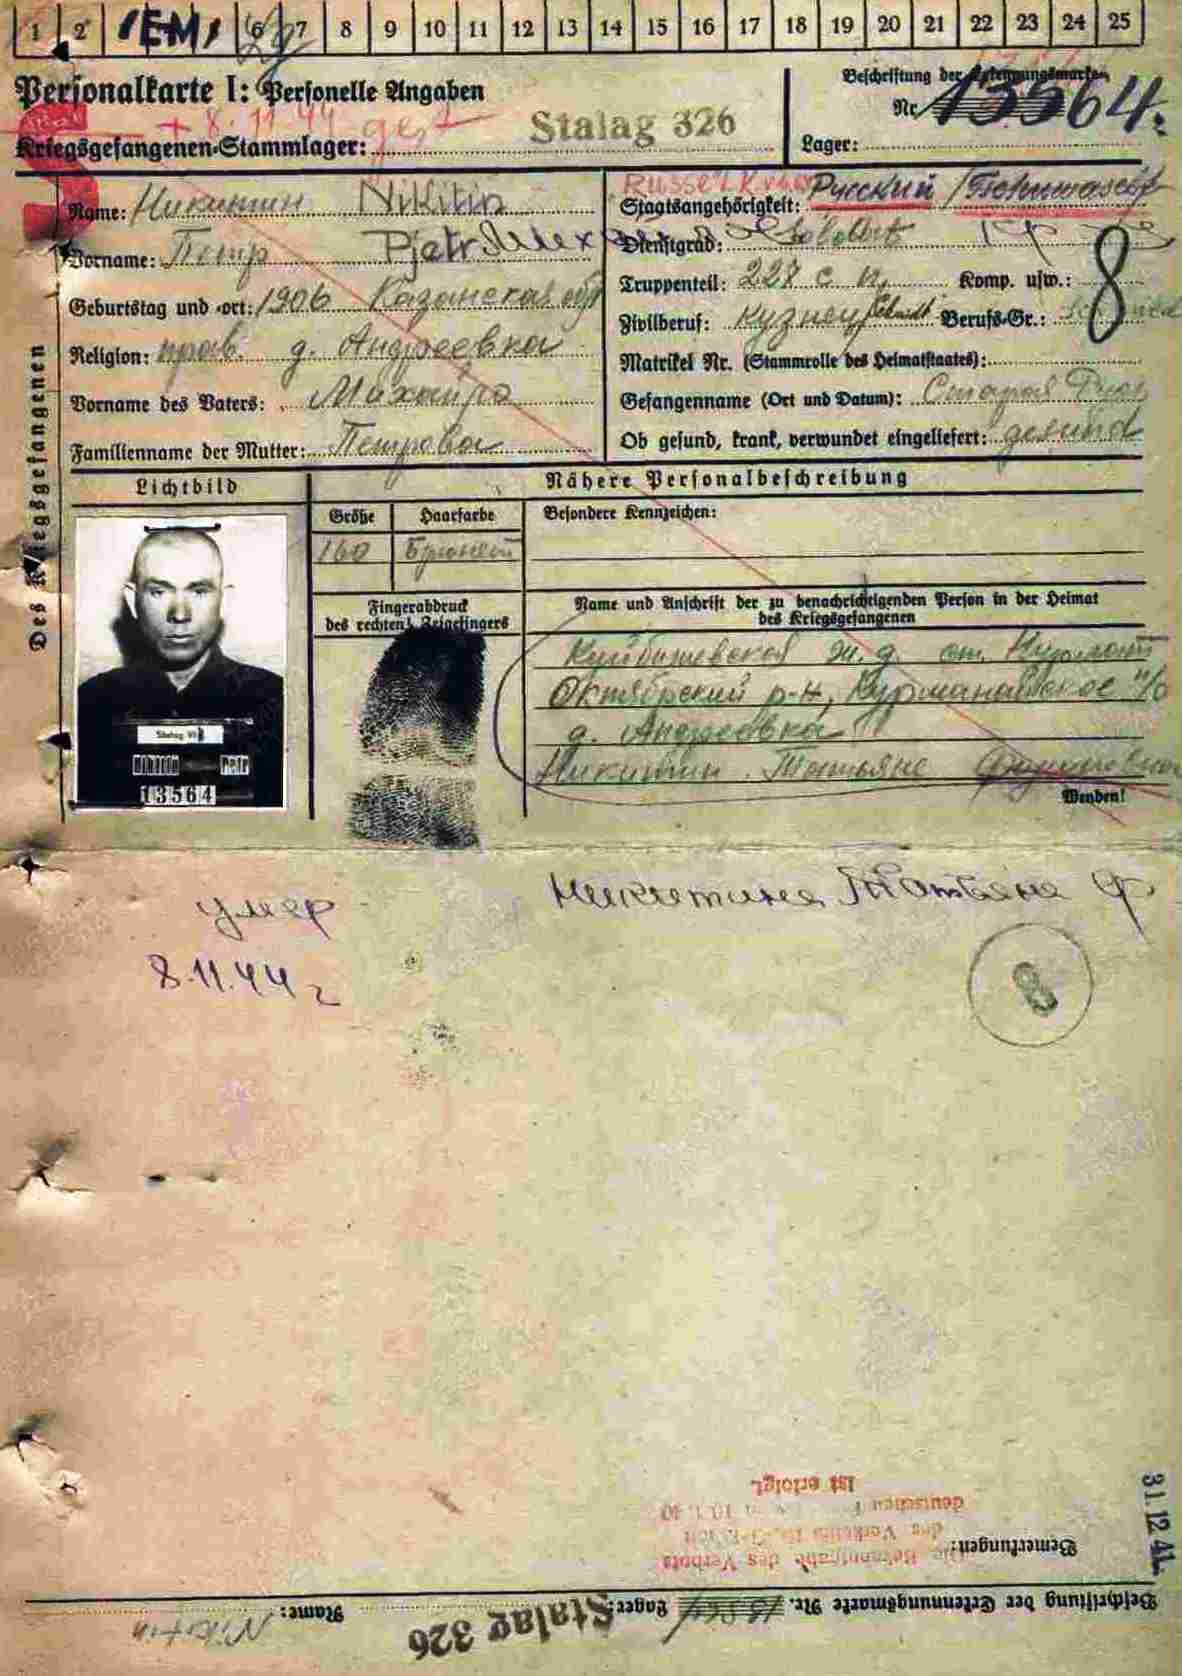 1 2 EM 6 7 8 9 10 11 12 13 14 15 16 17 18 19 20 21 22 23 24 25
Personalkarte I: Personelle Angaben
Beschriftung der Erkennungsmarke
Nr. 13564.
+ 8.11.44 gest
Kriegsgefangenen-Stammlager: Stalag 326
Lager:
Des Kriegsgefangenen
Name: Никитин Nikitin
Vorname: Петр Pjetr
Geburtstag und -ort: 1906 Казанская обл
Religion: прав. д. Андреевка
Vorname des Vaters: Михайло
Familienname der Mutter: Петрова
Staatsangehörigkeit: Русский /
Dienstgrad: Soldat
Truppenteil: 227 с п, Komp. usw.: 8
Zivilberuf: Кузнец Schmidt Berufs-Gr.:
Matrikel Nr. (Stammrolle des Heimatstaates):
Gefangenname (Ort und Datum): Старая
Ob gesund, krank, verwundet eingeliefert: gesund
Lichtbild
Nähere Personalbeschreibung
Größe Haarfarbe Besondere Kennzeichen:
160 Брюнет
Fingerabdruck
des rechten Zeigefingers
Name und Anschrift der zu benachrichtigenden Person in der Heimat
des Kriegsgefangenen
Куйбышевская ж. д. ст. Нурлат
Октябрский р-н, Курманаевское п/о
д. Андреевка
Никитин. Татьяне
Wenden!
Stalag VI
Petr
13564
Никитина Татьяна Ф.
умер
8.11.44 г
8
ist erfolgt.
deutschen
des Verbots
Bemerkungen:
31.12.41.
Beschriftung der Erkennungsmarke Nr. 13564 Lager: Stalag 326 Name: Nikitin